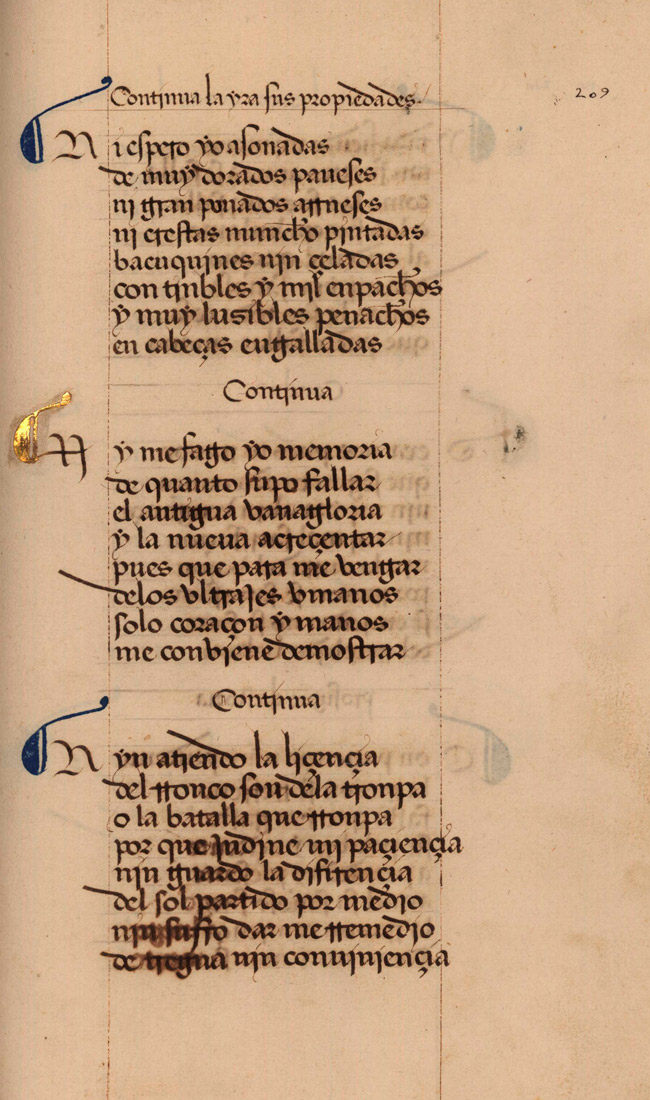 Continua la yra sus propiedades.
209
Ni espero yo asonadas
de muy dorados paueses
ni gran ponados arneses
ni crestas muncho pintadas
bacuquines nin çeladas
con tinbles y mil enpachos
y muy lusibles penachos
en cabeças engalladas
Continua
Ny me fago yo memoria
de quanto supo fallar
el antigua vanagloria
y la nueua acreçentar
pues que para me vengar
delos vltrajes vmanos
solo coraçon y manos
me conviene demostrar
Continua
Nyn atiendo la liçençia
del rronco son dela tronpa
o la batalla que rronpa
por que indine mi paçiençia
nin guardo la difirençia
del sol partido por medio
nin sufro dar me rremedio
de tregua nin conviniençia